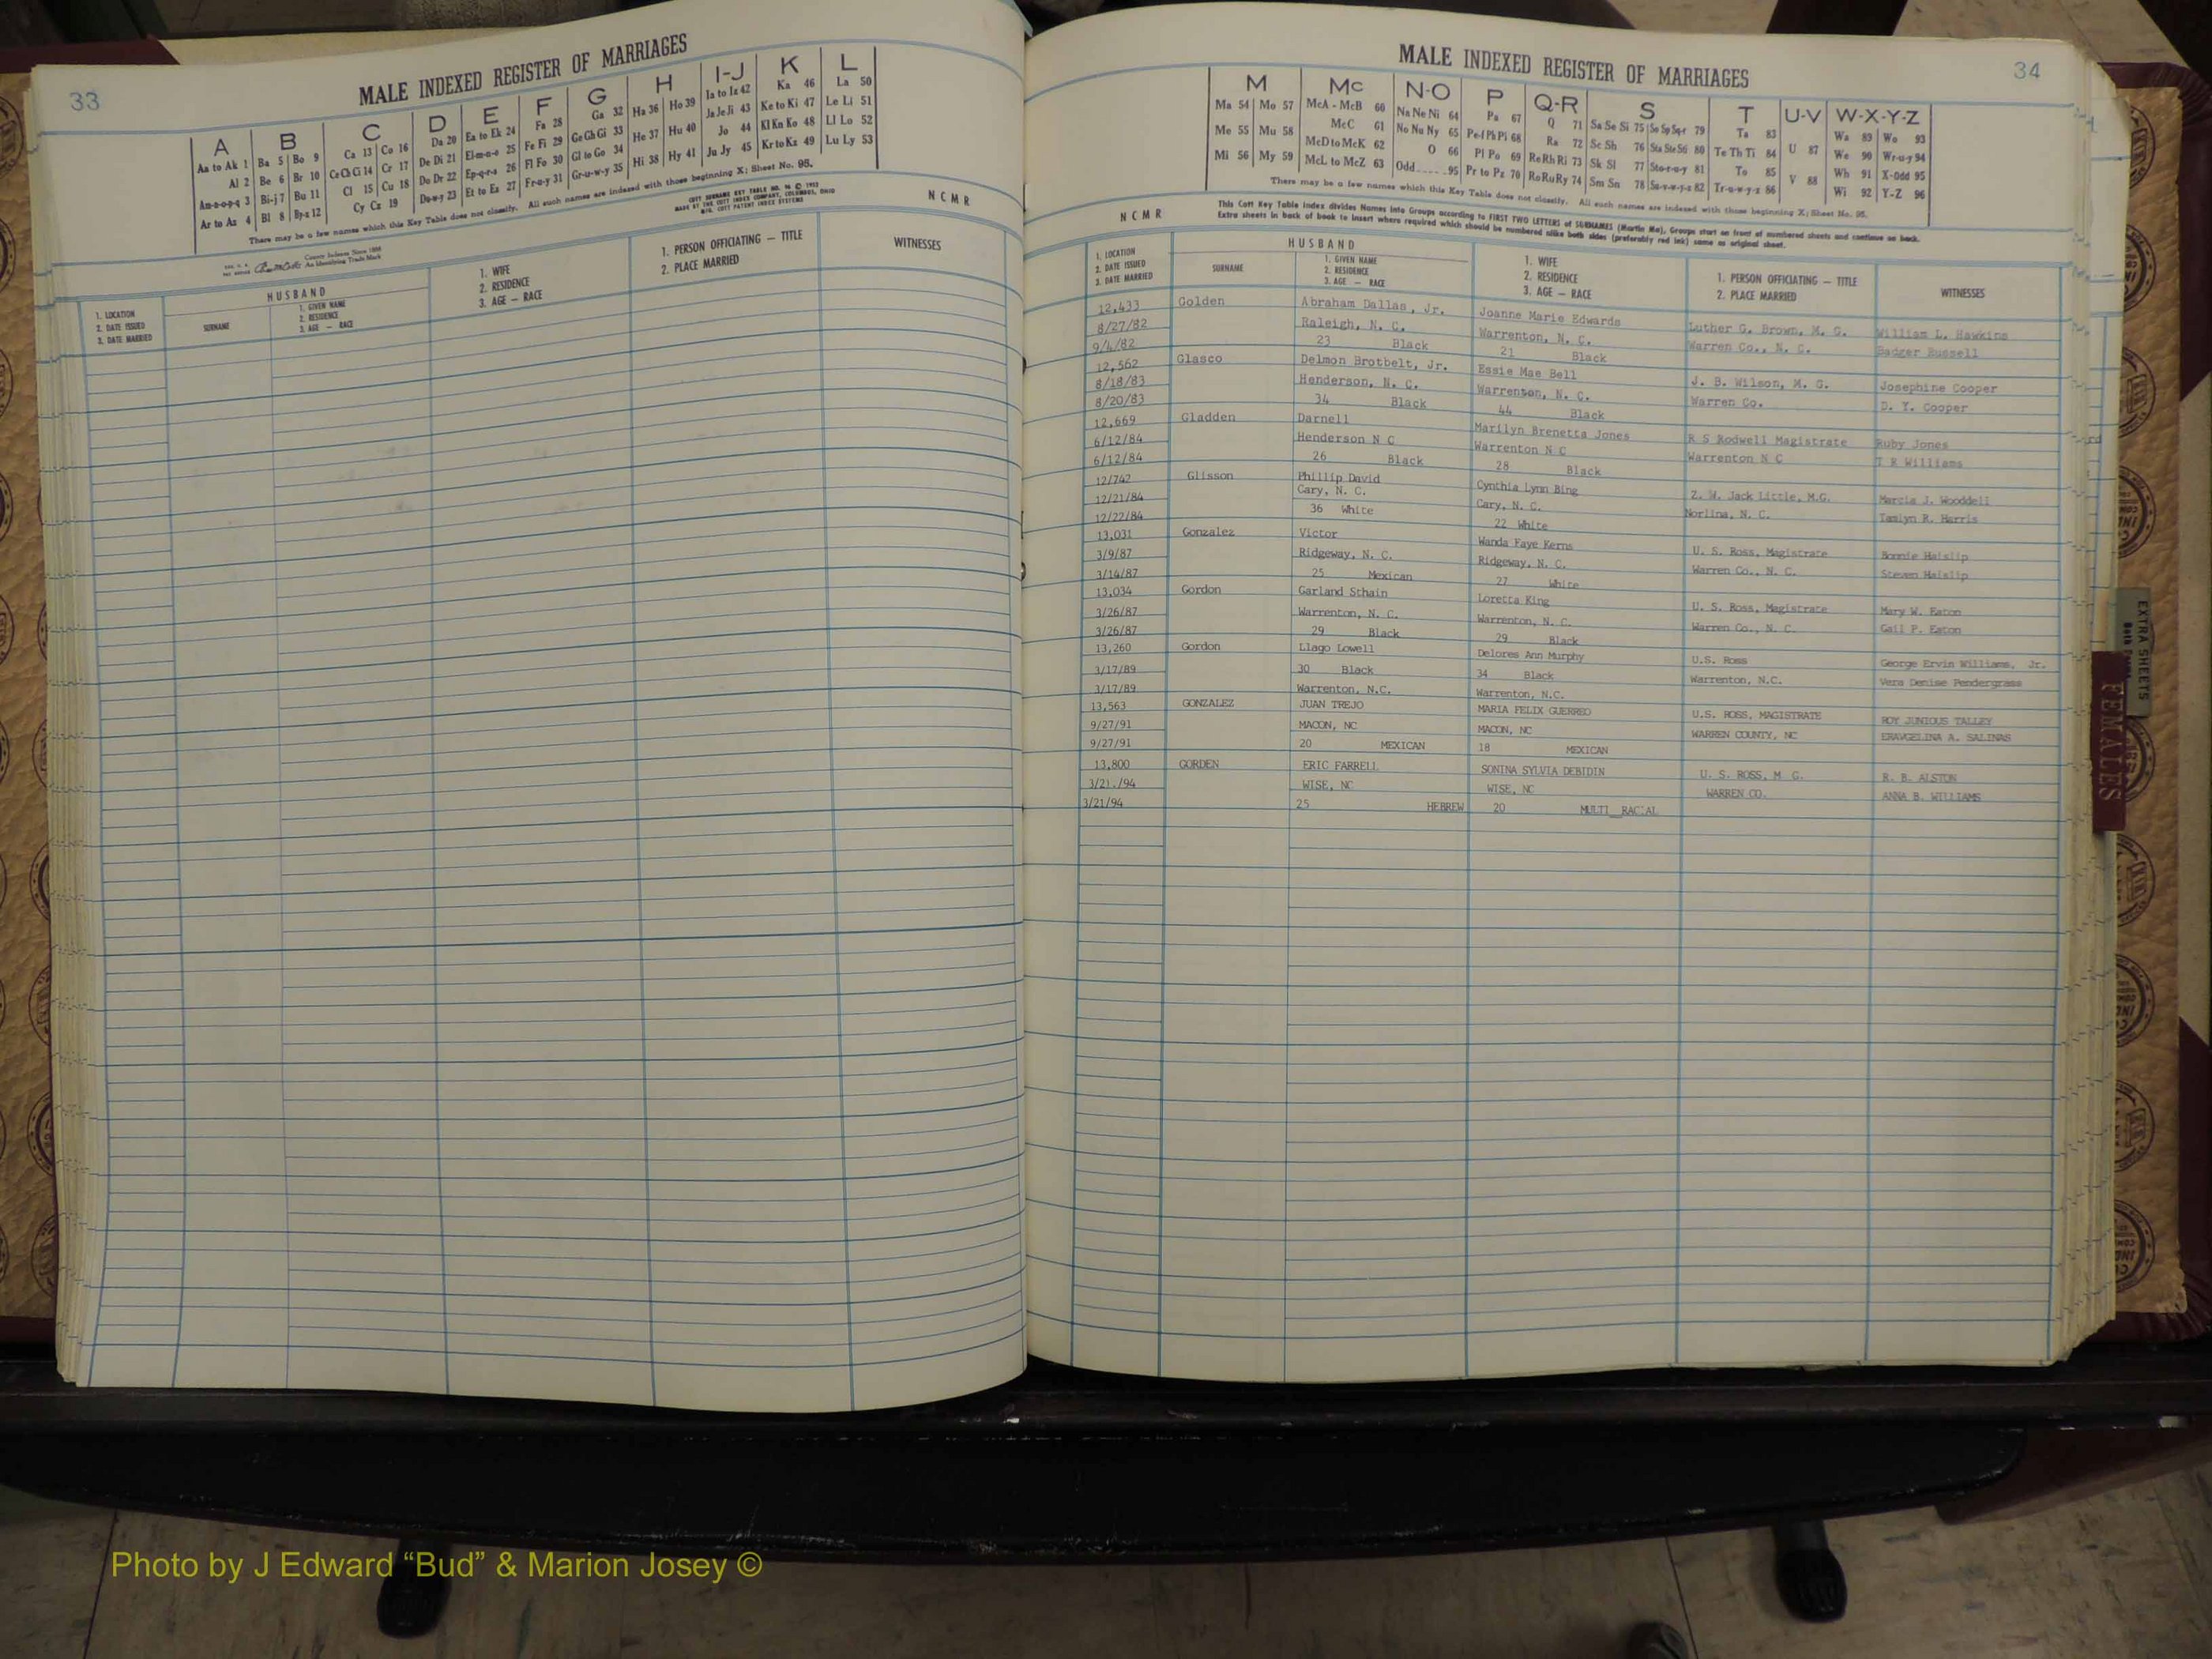 33
MALE INDEXED REGISTER OF MARRIAGES
A B C D E F G H I-J K L
Aa to Ak 1 Ba 5 Bo 9 Ca 13 Co 16 Da 20 Ea to Ek 24 Fa 28 Ga 32 Ha 36 Ho 39 Ia to Iz 42 Ka 46 La 50
Al 2 Be 6 Br 10 Ce Ch Ci 14 Cr 17 De Di 21 El-m-n-o 25 Fe Fi 29 Ge Gh Gi 33 He 37 Hu 40 Ja Je Ji 43 Ke to Ki 47 Le Li 51
Am-n-o-p-q 3 Bi-j 7 Bu 11 Cl 15 Cu 18 Do Dr 22 Ep-q-r-s 26 Fl Fo 30 Gl to Go 34 Hi 38 Hy 41 Jo 44 Kl Kn Ko 48 Ll Lo 52
Ar to Az 4 Bl 8 By-z 12 Cy Cz 19 Du-w-y 23 Et to Ez 27 Fr-u-y 31 Gr-u-w-y 35 Ju Jy 45 Kr to Kz 49 Lu Ly 53
There may be a few names which this Key Table does not classify. All such names are indexed with those beginning X; Sheet No. 95.
COTT SURNAME KEY TABLE NO. 96 © 1952
MADE BY THE COTT INDEX COMPANY, COLUMBUS, OHIO
MFG. COTT PATENT INDEX SYSTEMS
N C M R
County Indexes Since 1888
An Identifying Trade Mark
1. LOCATION
2. DATE ISSUED
3. DATE MARRIED
HUSBAND
SURNAME
1. GIVEN NAME
2. RESIDENCE
3. AGE — RACE
1. WIFE
2. RESIDENCE
3. AGE — RACE
1. PERSON OFFICIATING — TITLE
2. PLACE MARRIED
WITNESSES
MALE INDEXED REGISTER OF MARRIAGES
34
M Mc N-O P Q-R S T U-V W-X-Y-Z
Ma 54 Mo 57 McA - McB 60 Na Ne Ni 64 Pa 67 Q 71 Sa Se Si 75 So Sp Sq-r 79 Ta 83 Wa 89 Wo 93
Me 55 Mu 58 McC 61 No Nu Ny 65 Pe-f Ph Pi 68 Ra 72 Sc Sh 76 Sta Ste Sti 80 Te Th Ti 84 U 87 We 90 Wr-u-y 94
Mi 56 My 59 McD to McK 62 O 66 Pl Po 69 Re Rh Ri 73 Sk Sl 77 Sto-r-u-y 81 To 85 Wh 91 X-Odd 95
McL to McZ 63 Odd 95 Pr to Pz 70 Ro Ru Ry 74 Sm Sn 78 Su-v-w-y-z 82 Tr-u-w-y-z 86 V 88 Wi 92 Y-Z 96
There may be a few names which this Key Table does not classify. All such names are indexed with those beginning X; Sheet No. 95.
N C M R
This Cott Key Table Index divides Names into Groups according to FIRST TWO LETTERS of SURNAMES (Martin Ma), Groups start on front of numbered sheets and continue on back.
Extra sheets in back of book to insert where required which should be numbered alike both sides (preferably red ink) same as original sheet.
1. LOCATION
2. DATE ISSUED
3. DATE MARRIED
HUSBAND
SURNAME
1. GIVEN NAME
2. RESIDENCE
3. AGE — RACE
1. WIFE
2. RESIDENCE
3. AGE — RACE
1. PERSON OFFICIATING — TITLE
2. PLACE MARRIED
WITNESSES
12,433 Golden Abraham Dallas, Jr. Joanne Marie Edwards Luther G. Brown, M. G. William L. Hawkins
8/27/82 Raleigh, N. C. Warrenton, N. C. Warren Co., N. C. Badger Russell
9/4/82 23 Black 21 Black
12,562 Glasco Delmon Brotbelt, Jr. Essie Mae Bell J. B. Wilson, M. G. Josephine Cooper
8/18/83 Henderson, N. C. Warrenton, N. C. Warren Co. D. Y. Cooper
8/20/83 34 Black 44 Black
12,669 Gladden Darnell Marilyn Brenetta Jones R S Rodwell Magistrate Ruby Jones
6/12/84 Henderson N C Warrenton N C Warrenton N C T R Williams
6/12/84 26 Black 28 Black
12/742 Glisson Phillip David Cynthia Lynn Bing Z. W. Jack Little, M.G. Marcia J. Wooddell
12/21/84 Cary, N. C. Cary, N. C. Norlina, N. C. Tamlyn R. Harris
12/22/84 36 White 22 White
13,031 Gonzalez Victor Wanda Faye Kerns U. S. Ross, Magistrate Bonnie Haislip
3/9/87 Ridgeway, N. C. Ridgeway, N. C. Warren Co., N. C. Steven Haislip
3/14/87 25 Mexican 27 White
13,034 Gordon Garland Sthain Loretta King U. S. Ross, Magistrate Mary W. Eaton
3/26/87 Warrenton, N. C. Warrenton, N. C. Warren Co., N. C. Gail P. Eaton
3/26/87 29 Black 29 Black
13,260 Gordon Llago Lowell Delores Ann Murphy U.S. Ross George Ervin Williams, Jr.
3/17/89 30 Black 34 Black Warrenton, N.C. Vera Denise Pendergrass
3/17/89 Warrenton, N.C. Warrenton, N.C.
13,563 GONZALEZ JUAN TREJO MARIA FELIX GUERREO U.S. ROSS, MAGISTRATE ROY JUNIOUS TALLEY
9/27/91 MACON, NC MACON, NC WARREN COUNTY, NC ERAVGELINA A. SALINAS
9/27/91 20 MEXICAN 18 MEXICAN
13,800 GORDEN ERIC FARRELL SONINA SYLVIA DEBIDIN U. S. ROSS, M G. R. B. ALSTON
3/21./94 WISE, NC WISE, NC WARREN CO. ANNA B. WILLIAMS
3/21/94 25 HEBREW 20 MULTI__RACIAL
EXTRA SHEETS
FEMALES
Photo by J Edward “Bud” & Marion Josey ©